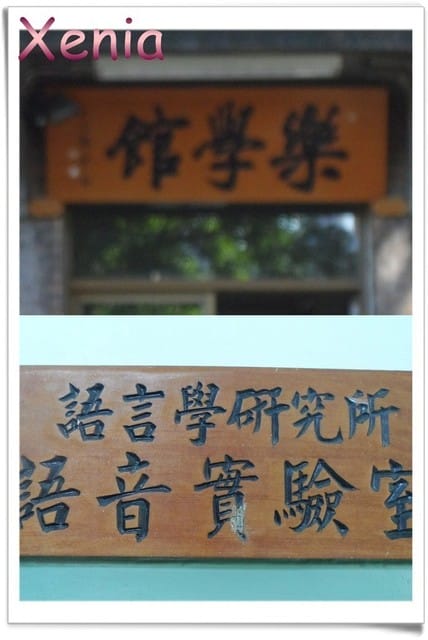 Xenia
樂學館
語言學研究所
語音實驗室